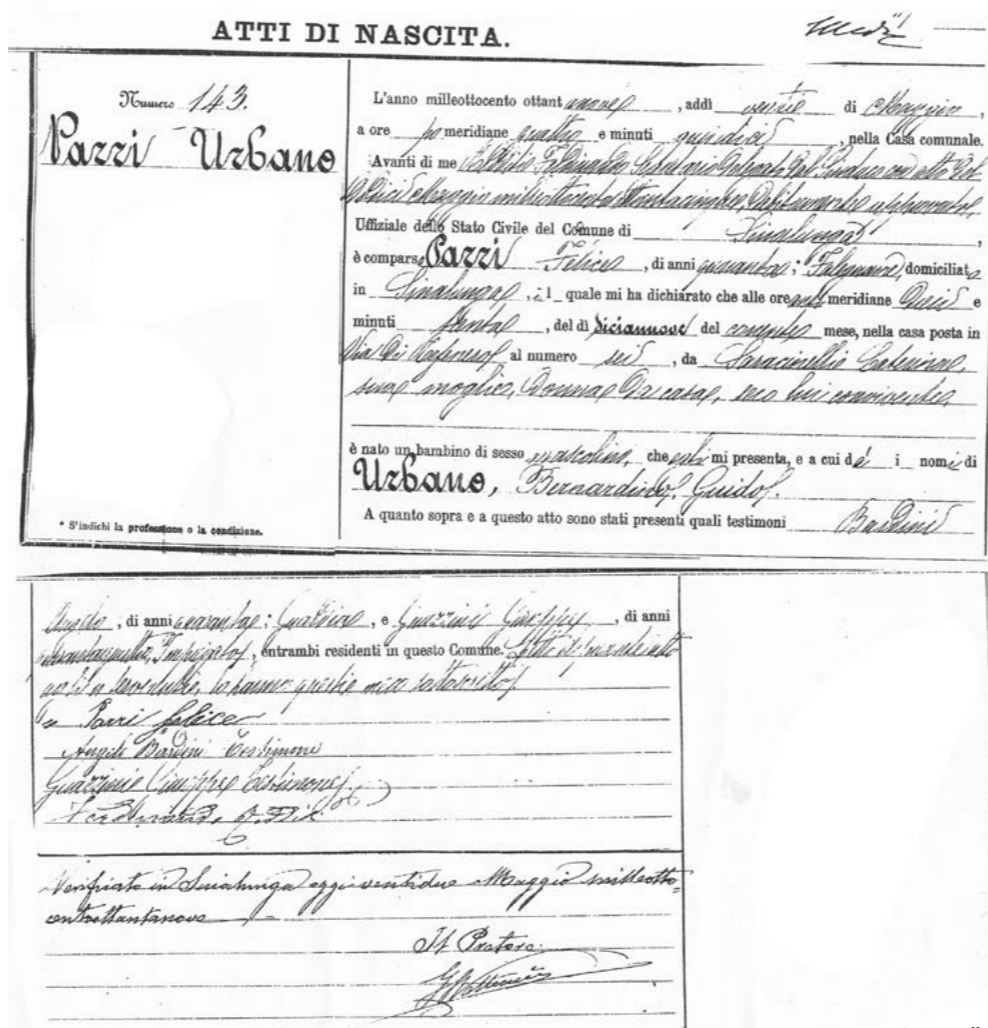 ATTI DI NASCITA.
Numero 143.
Parri Urbano
* S'indichi la professione o la condizione.
L'anno milleottocento ottantanove, addì venti di Maggio,
a ore pomeridiane quattro e minuti quindici, nella Casa comunale.
Avanti di me Ferdinando Segretario Delegato dal Sindaco con atto del
dodici Maggio milleottocento ottantacinque, debitamente approvato,
Uffiziale dello Stato Civile del Comune di Sinalunga,
è comparso Parri Felice, di anni quaranta; Falegname, domiciliato
in Sinalunga, il quale mi ha dichiarato che alle ore anti meridiane dieci e
minuti trenta, del dì diciannove del corrente mese, nella casa posta in
Via al numero sei, da Caterina,
sua moglie, Donna da casa, seco lui convivente,
è nato un bambino di sesso mascolino, che egli mi presenta, e a cui dà i nomi di
Urbano, Bernardino, Guido.
A quanto sopra e a questo atto sono stati presenti quali testimoni Bardini
Angelo, di anni quaranta; Guardia, e Guazzini Giuseppe, di anni
Impiegato, entrambi residenti in questo Comune. Letto il presente atto
lo hanno meco sottoscritto.
Parri Felice
Angelo Bardini Testimone
Guazzini Giuseppe Testimone
Verificato in Sinalunga oggi ventidue Maggio milleotto-
centottantanove
Il Pretore